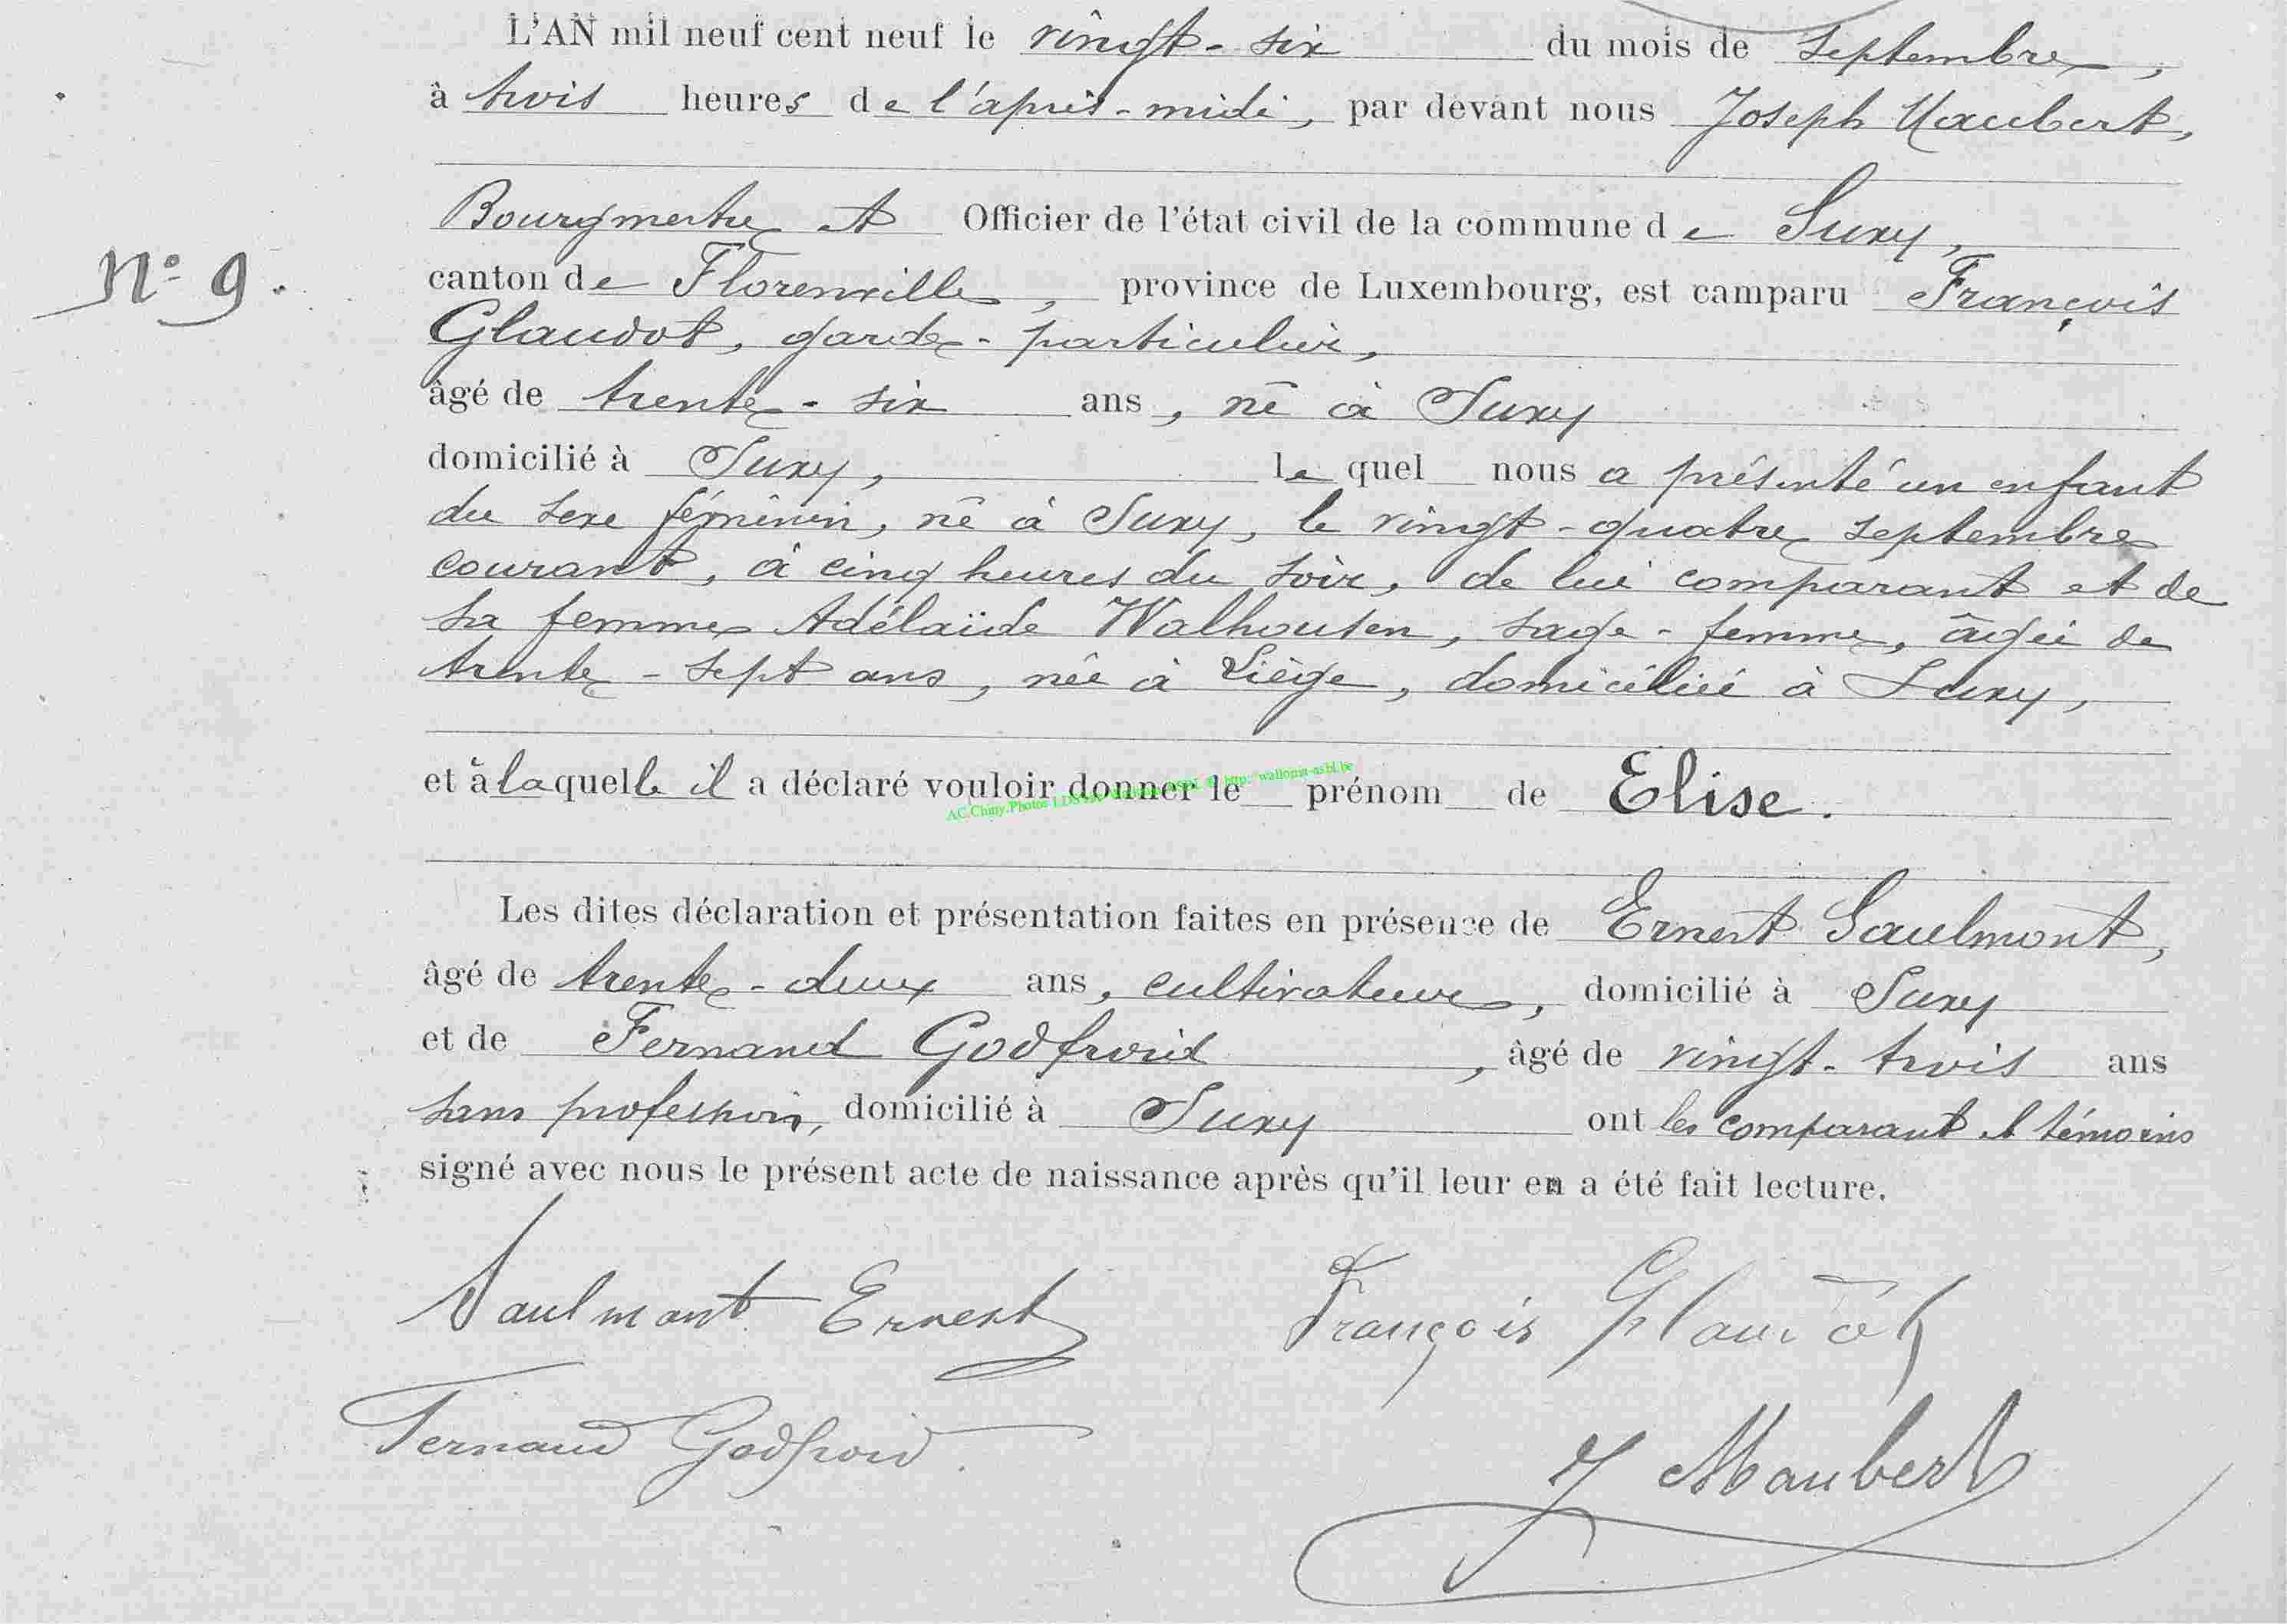 L'AN mil neuf cent neuf le vingt-six du mois de septembre,
à trois heures de l'après-midi, par devant nous Joseph Maubert,
Bourgmestre et Officier de l'état civil de la commune de Suxy,
N° 9.
canton de Florenville, province de Luxembourg, est camparu François
Glaudot, garde-particulier,
âgé de trente-six ans, né à Suxy
domicilié à Suxy, le quel nous a présenté un enfant
du sexe féminin, né à Suxy, le vingt-quatre septembre
courant, à cinq heures du soir, de lui comparant et de
sa femme Adélaïde Walhousen, sage-femme, âgée de
trente-sept ans, née à Liège, domiciliée à Suxy,
et à laquelle il a déclaré vouloir donner le prénom de Elise.
Les dites déclaration et présentation faites en présence de Ernest Saulmont,
âgé de trente-deux ans, cultivateur, domicilié à Suxy
et de Fernand Godfroid, âgé de vingt-trois ans
sans profession, domicilié à Suxy ont les comparant et témoins
signé avec nous le présent acte de naissance après qu'il leur en a été fait lecture.
Saulmont Ernest François Glaudot
Fernand Godfroid.
J Maubert